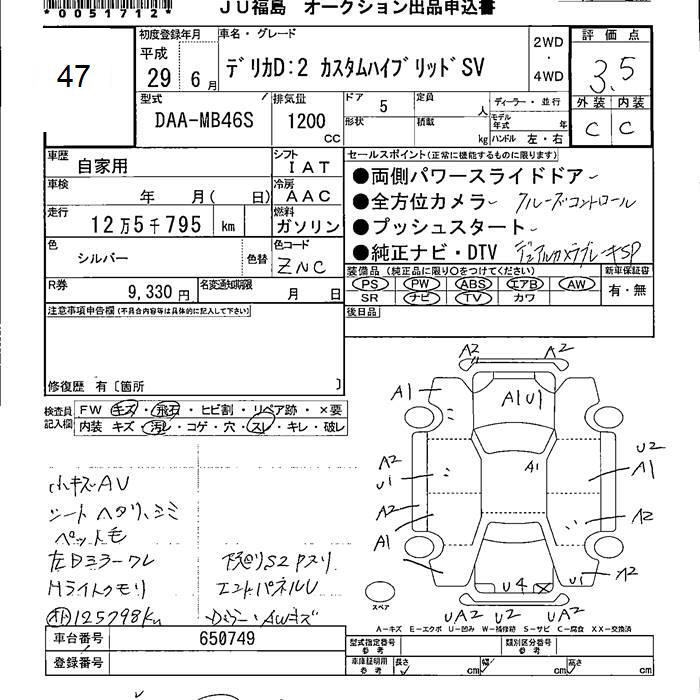 *0051712*
JU福島 オークション出品申込書
47
初度登録年月
平成
29 6月
車名・グレード
デリカD:2 カスタムハイブリッドSV
2WD
・
4WD
評価点
3.5
外装 内装
C C
型式
DAA-MB46S
排気量
1200
CC
ドア
5
定員
人
形状
積載
kg
ディーラー・並行
モデル年式
年
ハンドル 左・右
車歴
自家用
シフト
IAT
車検
年 月( 日)
冷房
AAC
走行
12万5千795 km
燃料
ガソリン
色
シルバー
色替
色コード
ZNC
R券
9,330円
名変通知期限
月 日
セールスポイント(正常に機能するものに限ります)
●両側パワースライドドア
●全方位カメラ クルーズコントロール
●プッシュスタート
●純正ナビ・DTV デュアルカメラブレーキSP
装備品(純正品に限り○をつけてください)
PS PW ABS エアB AW
SR ナビ TV カワ
新車保証書
有・無
後日品
注意事項申告欄(不具合内容等は具体的に記入して下さい)
修復歴 有〔箇所 〕
検査員記入欄
FW キズ・飛石・ヒビ割・リペア跡・×要
内装 キズ・汚レ・コゲ・穴・スレ・キレ・破レ
小キズAU
シートヘタリ、シミ
ペット毛
左Dミラーワレ
Hライトクモリ
125798km
下廻りS2 Pスリ
エンドパネルU
Dミラー・AWキズ
A2 A2
A1
A1U1
A2
U1
A1
U2
A1
A2
A1
A2
U4
U1
A2
UA2 U2 UA2
スペア
A-キズ E-エクボ U-凹み W-補修跡 S-サビ C-腐食 XX-交換済
車台番号
650749
登録番号
型式指定番号
参考
類別区分番号
参考
車庫証明用
参考
長さ
cm
幅
cm
高さ
cm